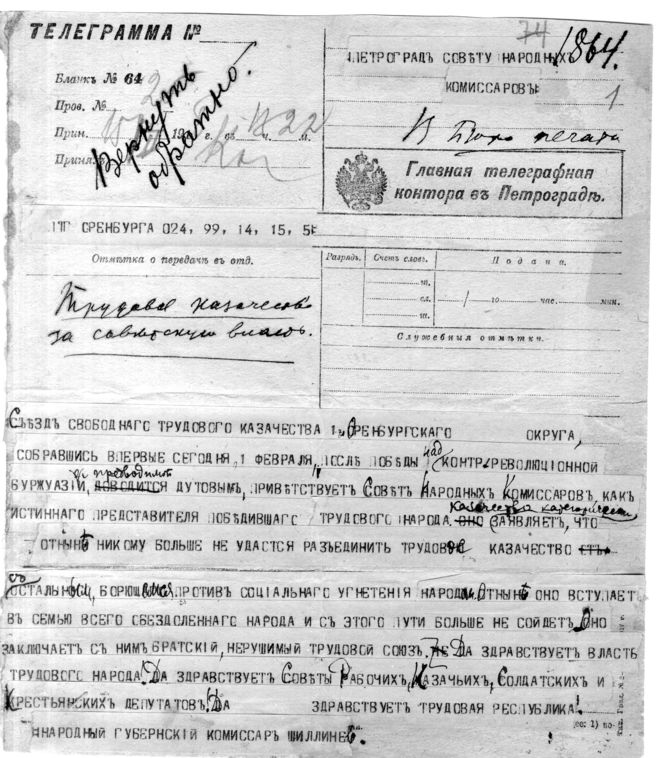 ТЕЛЕГРАММА №
74
1864.
ПЕТРОГРАДЪ СОВѢТУ НАРОДНЫХЪ
КОМИССАРОВЪ
1
Бланкъ № 64
Пров. №
Прин. 19 г. въ ч. м.
Принялъ
Вернуть
обратно.
12 22
В Бюро печати
Главная телеграфная
контора въ Петроградѣ.
ПТГ ОРЕНБУРГА 024, 99, 14, 15, 5
Отмѣтка о передачѣ въ отд.
Разрядъ. Счетъ словъ. Подана.
го час. мин.
Служебныя отмѣтки.
Трудовое казачество
за советскую власть.
СЪѢЗДЪ СВОБОДНАГО ТРУДОВОГО КАЗАЧЕСТВА 1 ОРЕНБУРГСКАГО ОКРУГА,
СОБРАВШИСЬ ВПЕРВЫЕ СЕГОДНЯ, 1 ФЕВРАЛЯ, ПОСЛѢ ПОБѢДЫ над КОНТР-РЕВОЛЮЦІОННОЙ
БУРЖУАЗІЙ, предводимой ДОВОДИТСЯ ДУТОВЫМЪ, ПРИВѢТСТВУЕТ СОВѢТ НАРОДНЫХЪ КОМИССАРОВЪ, КАКЪ
ИСТИННАГО ПРЕДСТАВИТЕЛЯ ПОБѢДИВШАГО ТРУДОВОГО НАРОДА. ОНО казачество категорически ЗАЯВЛЯЕТЪ, ЧТО
ОТНЫНѢ НИКОМУ БОЛЬШЕ НЕ УДАСТСЯ РАЗЪЕДИНИТЬ ТРУДОВОЕ КАЗАЧЕСТВО СТЪ
съ
ОСТАЛЬНЫМ, БОРЮЩИМСЯ ПРОТИВЪ СОЦІАЛЬНАГО УГНЕТЕНІЯ НАРОДОМ. ОТНЫНѢ ОНО ВСТУПАЕТ
ВЪ СЕМЬЮ ВСЕГО ОБЕЗДОЛЕННАГО НАРОДА И СЪ ЭТОГО ПУТИ БОЛЬШЕ НЕ СОЙДЕТЪ. ОНО
ЗАКЛЮЧАЕТ СЪ НИМЪ БРАТСКІЙ, НЕРУШИМЫЙ ТРУДОВОЙ СОЮЗ. ДА ЗДРАВСТВУЕТЪ ВЛАСТЬ
ТРУДОВОГО НАРОДА! ДА ЗДРАВСТВУЕТЪ СОВѢТЫ РАБОЧИХЪ, КАЗАЧЬИХЪ, СОЛДАТСКИХЪ И
КРЕСТЬЯНСКИХЪ ДЕПУТАТОВЪ! ДА ЗДРАВСТВУЕТЪ ТРУДОВАЯ РЕСПУБЛИКА!
НАРОДНЫЙ ГУБЕРНСКІЙ КОМИССАР ШИЛЛИНГ